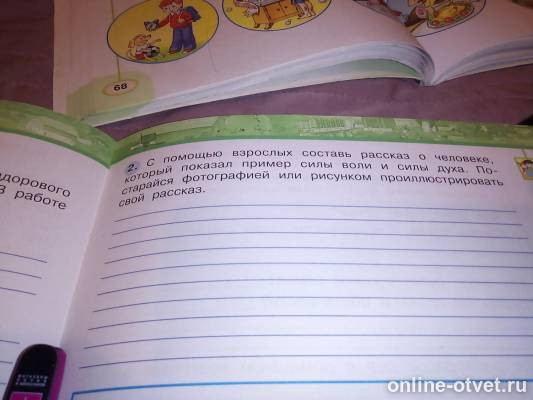 68
дорового
В работе
2. С помощью взрослых составь рассказ о человеке,
который показал пример силы воли и силы духа. По-
старайся фотографией или рисунком проиллюстрировать
свой рассказ.
online-otvet.ru